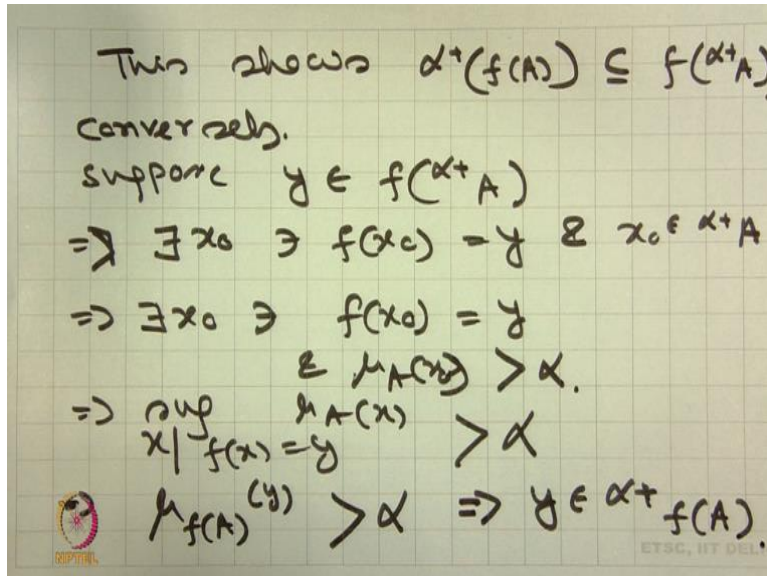 This shows α⁺(f(A)) ⊆ f(α⁺A)
conversely.
suppose y ∈ f(α⁺A)
=> ∃x₀ ∋ f(x₀) = y & x₀ ∈ α⁺A
=> ∃x₀ ∋ f(x₀) = y
& μ_A(x₀) > α.
=> sup μ_A(x) > α
x| f(x) = y
=> μ_f(A)(y) > α => y ∈ α⁺ f(A).
NPTEL
ETSC, IIT DEL